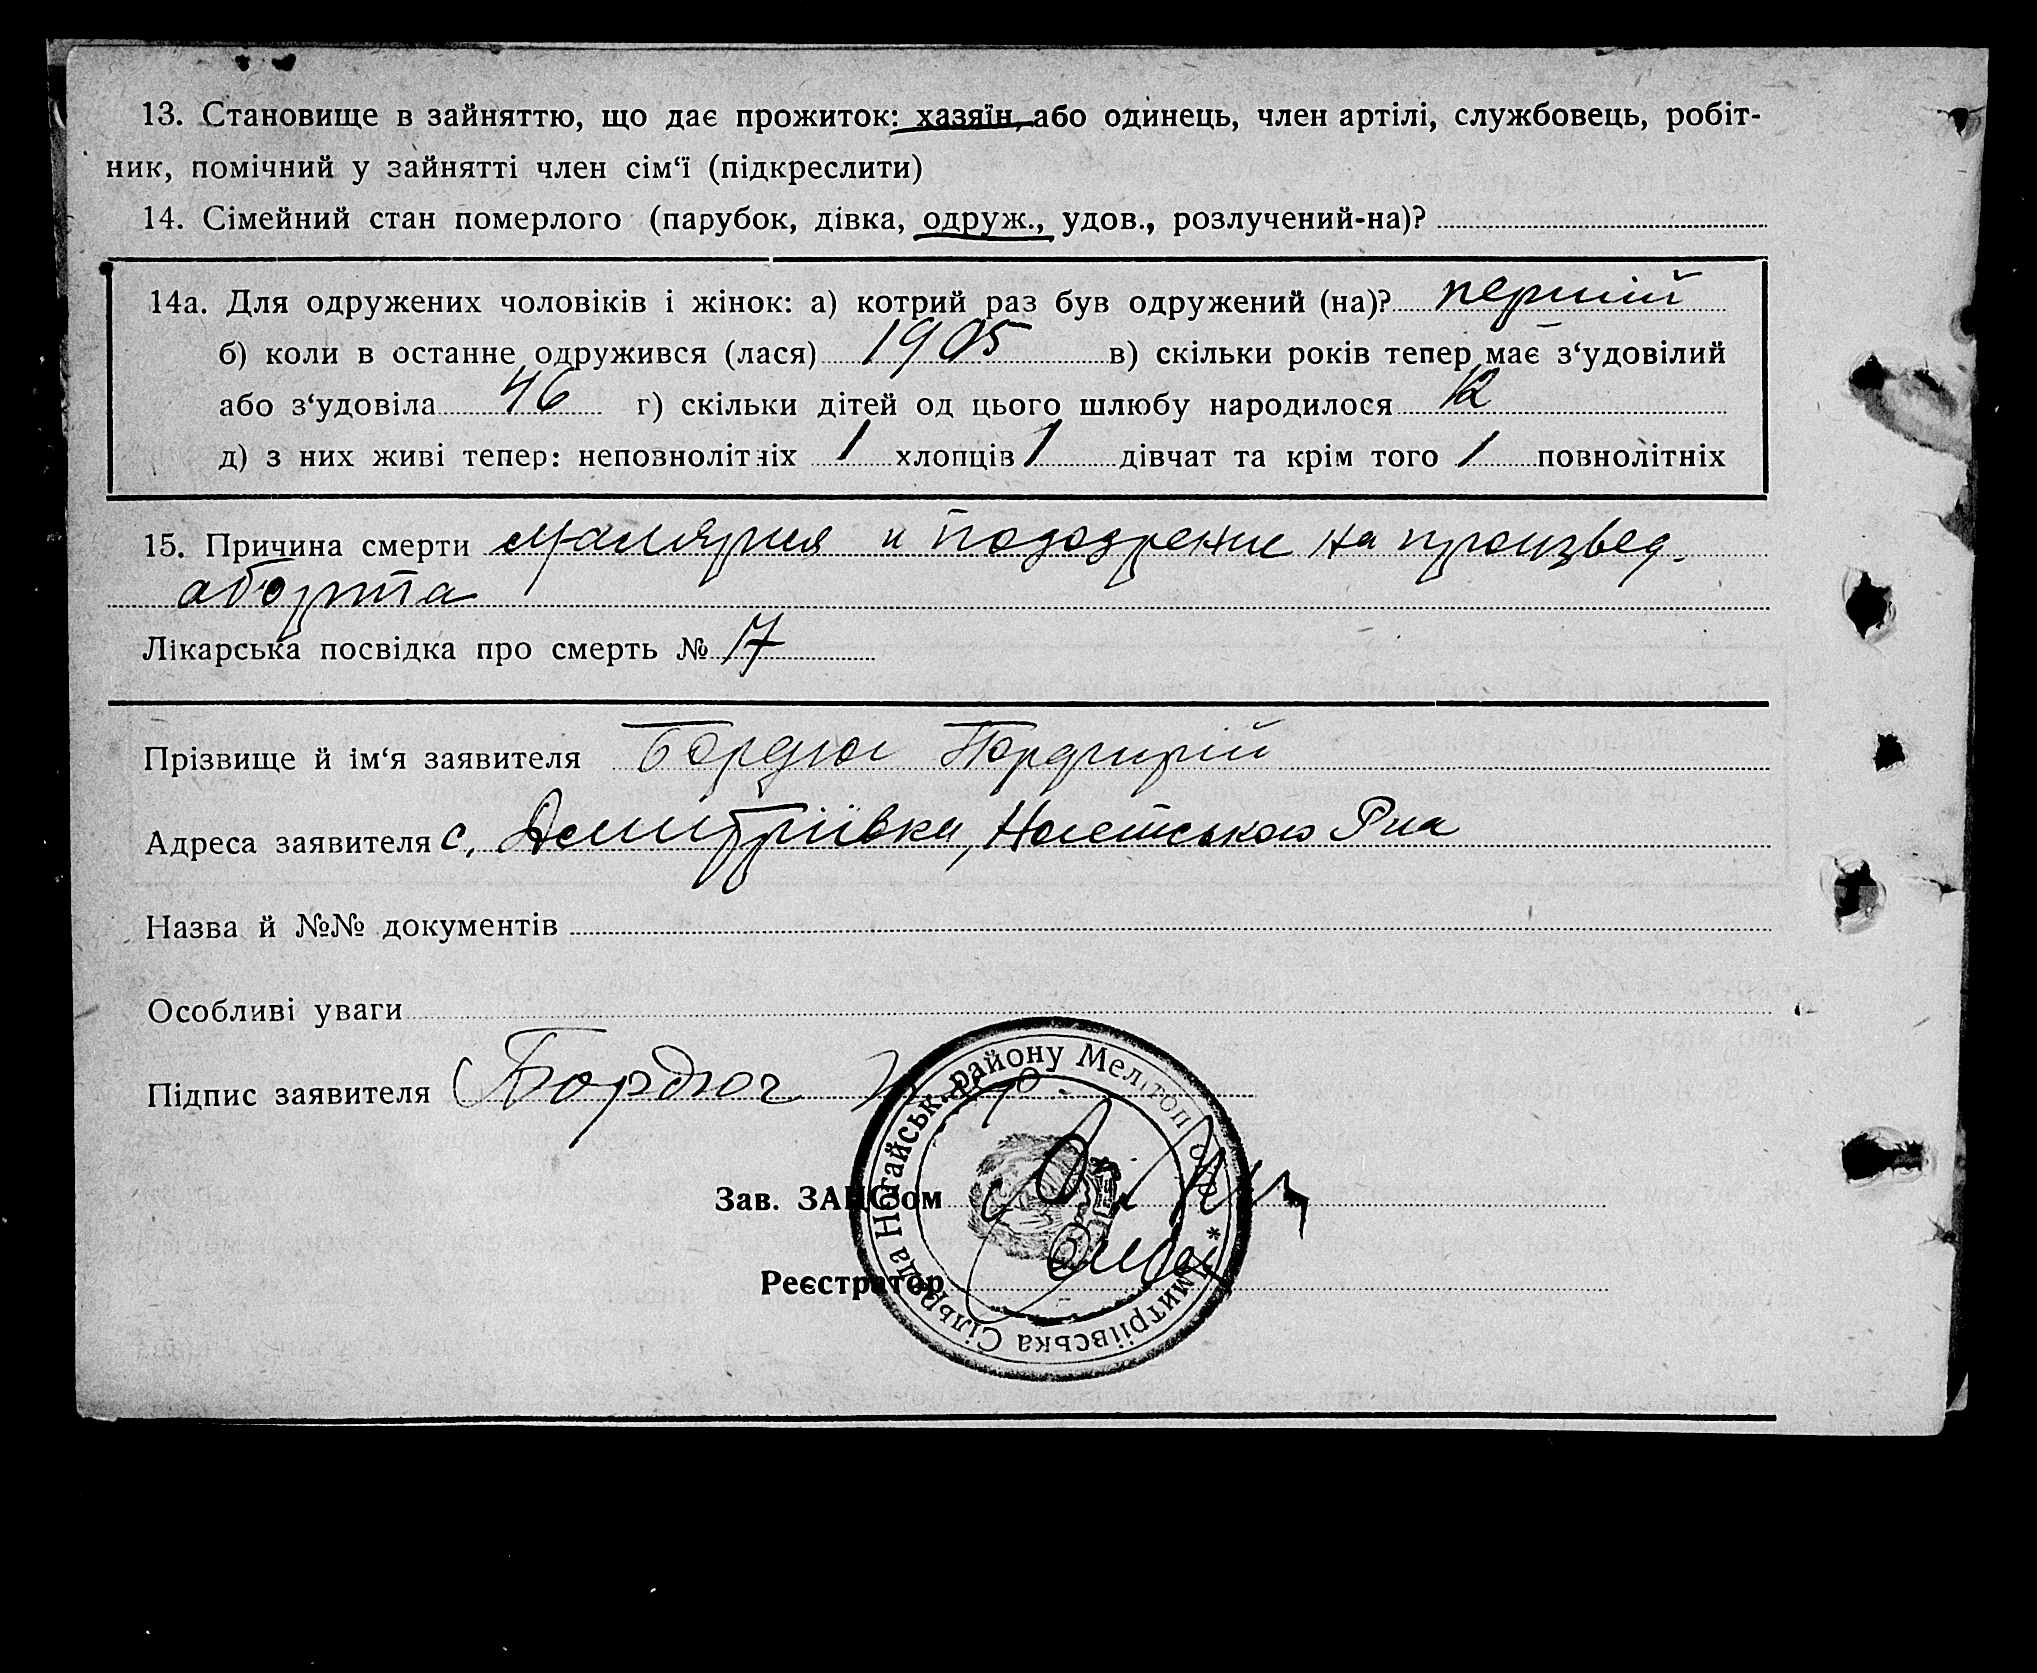 13. Становище в зайняттю, що дає прожиток: хазяїн, або одинець, член артілі, службовець, робіт-
ник, помічний у зайнятті член сім‘ї (підкреслити)
14. Сімейний стан померлого (парубок, дівка, одруж., удов., розлучений-на)?
14а. Для одружених чоловіків і жінок: а) котрий раз був одружений (на)? перший
б) коли в останне одружився (лася) 1905 в) скільки років тепер має з‘удовілий
або з‘удовіла 46 г) скільки дітей од цього шлюбу народилося 12
д) з них живі тепер: неповнолітніх 1 хлопців 1 дівчат та крім того 1 повнолітніх
15. Причина смерти малярия и подозрение на произвед.
аборта
Лікарська посвідка про смерть № 17
Прізвище й ім‘я заявителя Бордюг Порфирій
Адреса заявителя с. Дмитріівка,
Назва й №№ документів
Особливі уваги
Підпис заявителя Бордюг
Зав. ЗАПСом
Реєстратор
Дмитріівська Сільрада Ногайськ. району Мелітоп окр. *